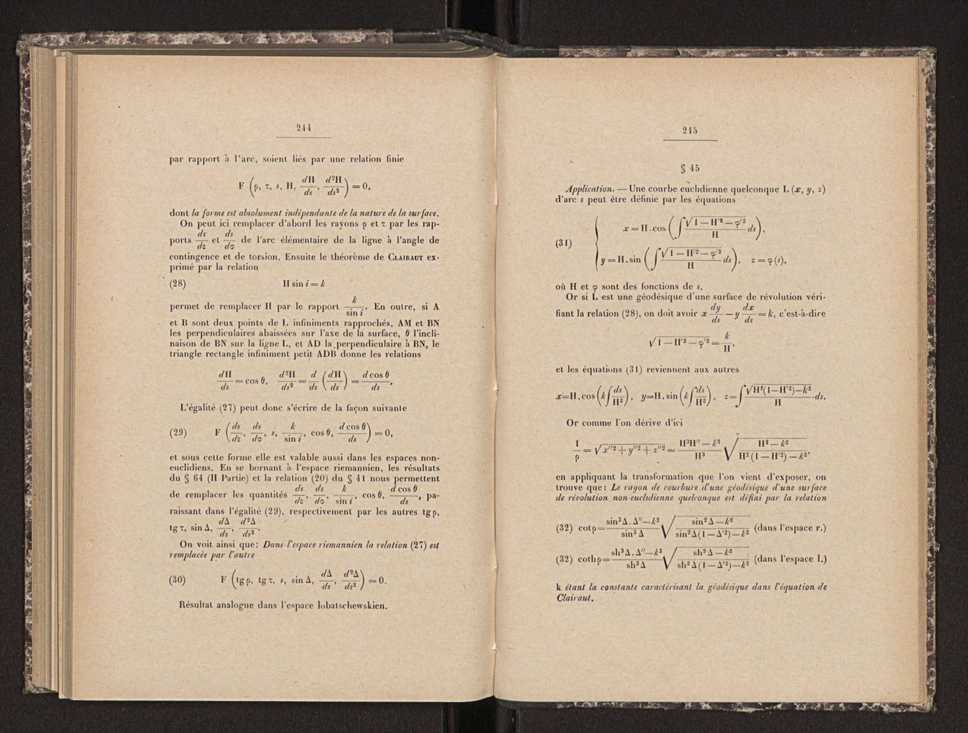 244
par rapport à l'arc, soient liés par une relation finie
F (ρ, τ, s, H, dH/ds, d²H/ds²) = 0,
dont la forme est absolument indépendante de la nature de la surface.
On peut ici remplacer d'abord les rayons ρ et τ par les rap-
ports ds/dε et ds/dϖ de l'arc élémentaire de la ligne à l'angle de
contingence et de torsion. Ensuite le théorème de CLAIRAUT ex-
primé par la relation
(28) H sin i = k
permet de remplacer H par le rapport k/sin i. En outre, si A
et B sont deux points de L infiniments rapprochés, AM et BN
les perpendiculaires abaissées sur l'axe de la surface, θ l'incli-
naison de BN sur la ligne L, et AD la perpendiculaire à BN, le
triangle rectangle infiniment petit ADB donne les relations
dH/ds = cos θ, d²H/ds² = d/ds (dH/ds) = d cos θ/ds,
L'égalité (27) peut donc s'écrire de la façon suivante
(29) F (ds/dε, ds/dϖ, s, k/sin i, cos θ, d cos θ/ds) = 0,
et sous cette forme elle est valable aussi dans les espaces non-
euclidiens. En se bornant à l'espace riemannien, les résultats
du § 64 (II Partie) et la relation (20) du § 41 nous permettent
de remplacer les quantités ds/dε, ds/dϖ, k/sin i, cos θ, d cos θ/ds, pa-
raissant dans l'égalité (29), respectivement par les autres tg ρ,
tg τ, sin Δ, dΔ/ds, d²Δ/ds².
On voit ainsi que: Dans l'espace riemannien la relation (27) est
remplacée par l'autre
(30) F (tg ρ, tg τ, s, sin Δ, dΔ/ds, d²Δ/ds²) = 0.
Résultat analogue dans l'espace lobatschewskien.
245
§ 45
Application. — Une courbe euclidienne quelconque L (x, y, z)
d'arc s peut être définie par les équations
(31) x = H.cos (∫ √(1 − H'² − φ'²)/H ds),
y = H.sin (∫ √(1 − H'² − φ'²)/H ds), z = φ(s),
où H et φ sont des fonctions de s.
Or si L est une géodésique d'une surface de révolution véri-
fiant la relation (28), on doit avoir x dy/ds − y dx/ds = k, c'est-à-dire
√(1 − H'² − φ'²) = k/H,
et les équations (31) reviennent aux autres
x=H.cos(k∫ds/H²), y=H.sin(k∫ds/H²), z=∫√(H²(1−H'²)−k²)/H ds.
Or comme l'on dérive d'ici
1/ρ = √(x''² + y''² + z''²) = (H³H'' − k²)/H³ √((H² − k²)/(H²(1 − H'²) − k²)),
en appliquant la transformation que l'on vient d'exposer, on
trouve que: Le rayon de courbure d'une géodésique d'une surface
de révolution non-euclidienne quelconque est défini par la relation
(32) cot ρ = (sin³Δ.Δ''−k²)/sin³Δ √((sin²Δ−k²)/(sin²Δ(1−Δ'²)−k²)) (dans l'espace r.)
(32) coth ρ = (sh³Δ.Δ''−k²)/sh³Δ √((sh²Δ−k²)/(sh²Δ(1−Δ'²)−k²)) (dans l'espace l.)
k étant la constante caractérisant la géodésique dans l'équation de
Clairaut.